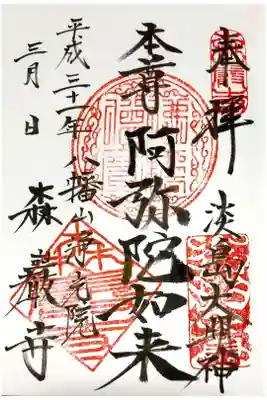 奉拝
淡島大明神
本尊 阿弥陀如来
八幡山浄光院
森巌寺
平成三十一年
三月 日